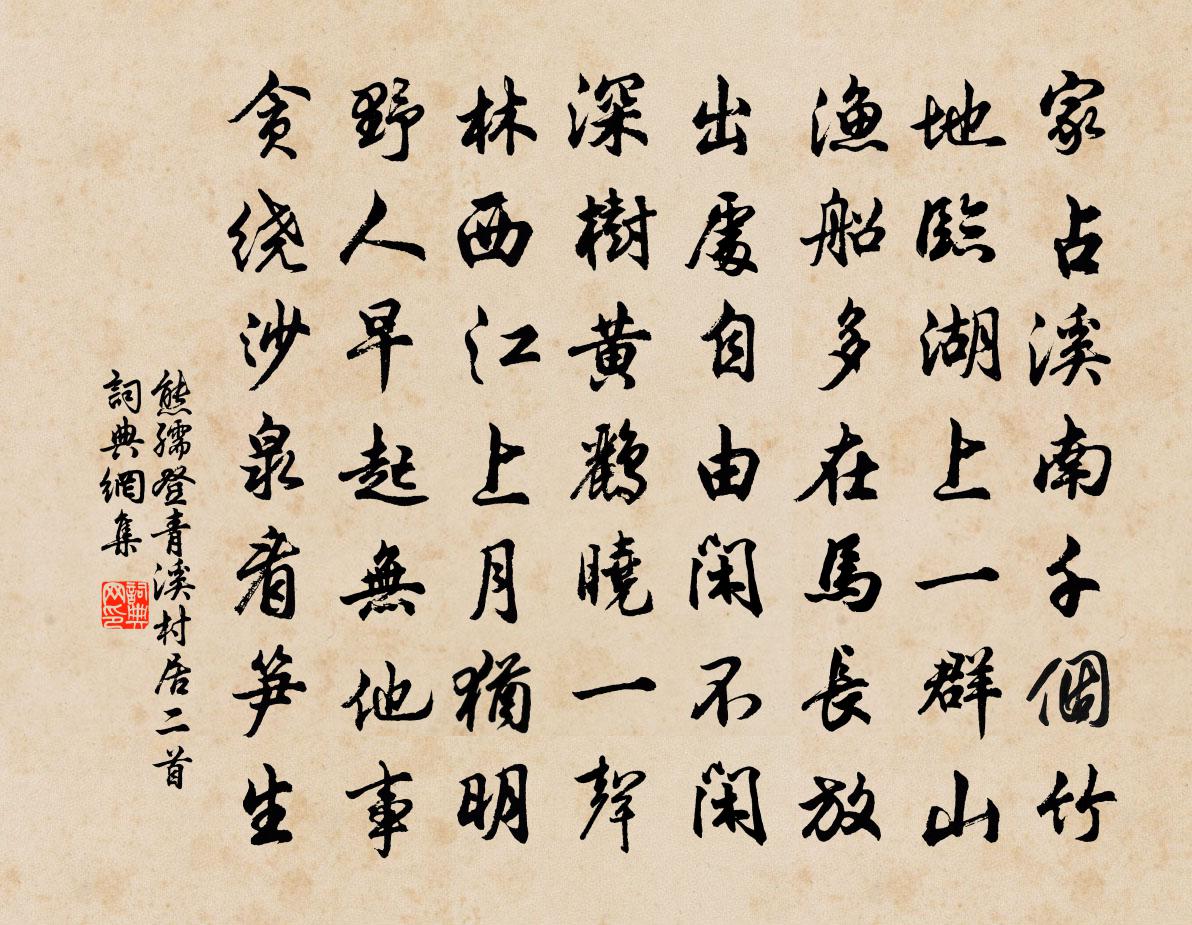 家占溪南千個竹
地臨湖上一群山
漁船多在馬長放
出處自由閑不閑
深樹黃鸝曉一聲
林西江上月猶明
野人早起無他事
貪繞沙泉看笋生
熊孺登青溪村居二首
詞典網集
詞典網印